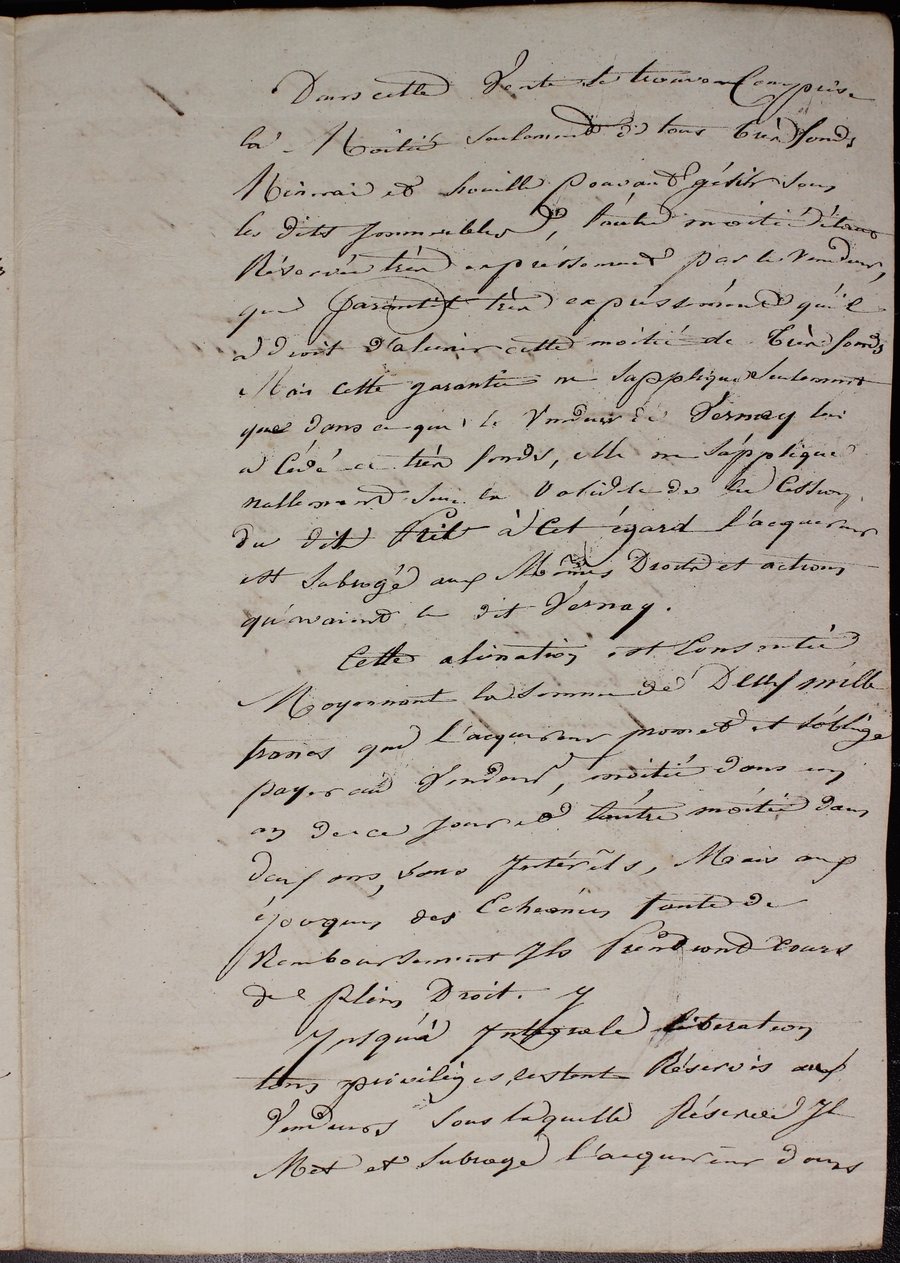 Dans cette Vente se trouve Comprise
la Moitié seulement de tous trèsfonds
Minerai et houille pouvant gésir sous
les dits Immeubles, l'autre moitié étant
Réservée très expréssement par le Vendeur,
que Garantit très expréssément qu'il
a droit d'alièner cette moitié de très fonds
Mais cette garantie ne s'applique seulement
que dans ce qui le Vendeur de Vernay lui
a Cédé ce très fonds, elle ne s'applique
nullement sur la Validité de la Cession
du dit à Cet égard l'acquereur
est Subrogé aux Mêmes Droits et actions
qu'avaient le dit Vernay.
Cette aliénation est Consentie
Moyennant la Somme de Deux mille
francs que l'acquereur promet et s'oblige
payer au Vendeur, moitié dans un
an de ce jour et l'autre moitié dans
deux ans, sans Intérêts, Mais aux
époques des Echeances faute de
Remboursement Ils Prendront Cours
de plein Droit.
Jusqu'à Intégrale libération
tous priviléges, restent Réservés aux
Vendeurs Sous laquelle Réserve Il
Met et Subroge l'acquereur dans